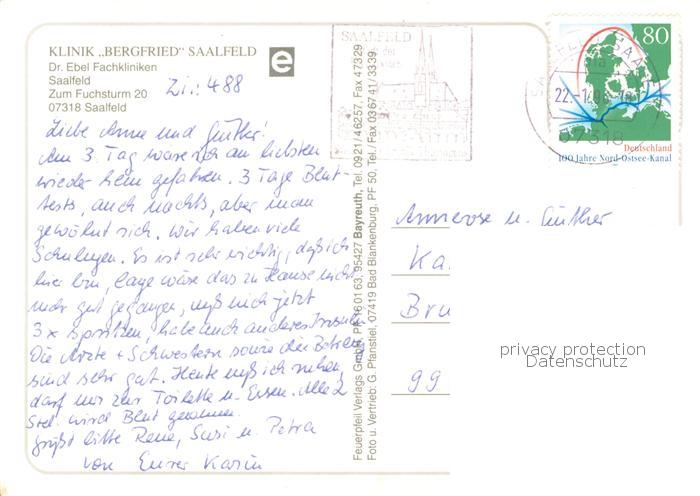 KLINIK „BERGFRIED" SAALFELD
Dr. Ebel Fachkliniken
Saalfeld
Zum Fuchsturm 20
07318 Saalfeld
e
Zi.: 488
Liebe Anne und Günther!
Am 3. Tag wäre ich am liebsten
wieder heim gefahren. 3 Tage Blut-
tests, auch nachts, aber man
gewöhnt sich. Wir haben viele
Schulungen. Es ist sehr wichtig, daß ich
hier bin, lange wäre das zu Hause nicht
mehr gut gegangen, muß mich jetzt
3 x spritzen, habe auch anderes Insulin
Die Ärzte + Schwestern sowie die
sind sehr gut. Heute muß ich ruhen,
darf nur zur Toilette u. Essen. Alle 2
Std. wird Blut genommen.
Grüßt bitte Rene, Susi u. Petra
von Eurer Karin
Feuerpfeil Verlags GmbH, PF 16 01 63, 95427 Bayreuth, Tel. 0921/46257, Fax 47329
Foto u. Vertrieb: G. Pfanstiel, 07419 Bad Blankenburg, PF 50, Tel./Fax 036741/3339
SAALFELD
80
22.-1
07318
Deutschland
100 Jahre Nord-Ostsee-Kanal
Annerose u. Günther
Ka
Bru
99
privacy protection
Datenschutz